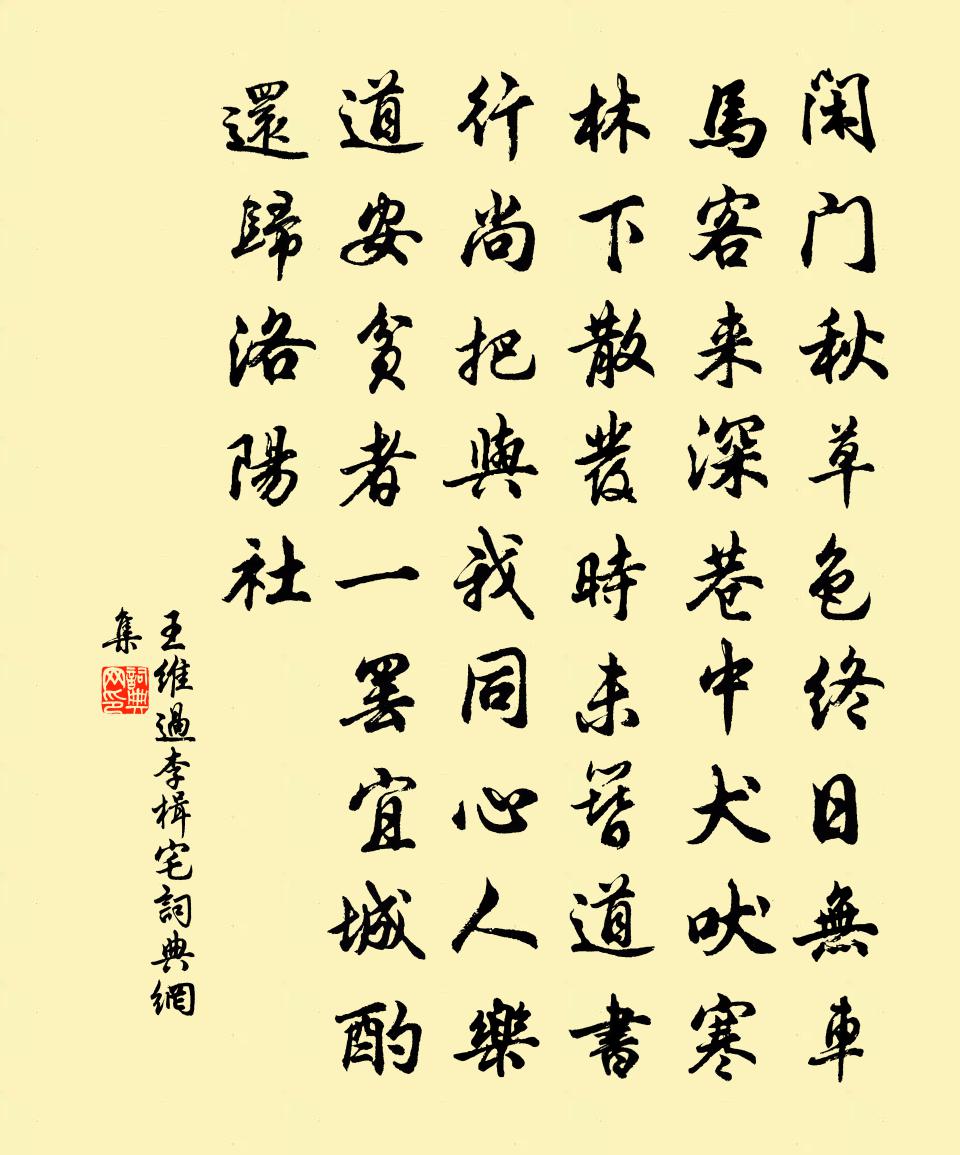 闲门秋草色终日無車
馬客来深巷中犬吠寒
林下散發時未簪道書
行尚把與我同心人樂
道安貧者一罢宜城酌
還歸洛陽社
王維過李楫宅詞典網
集
詞典
网印